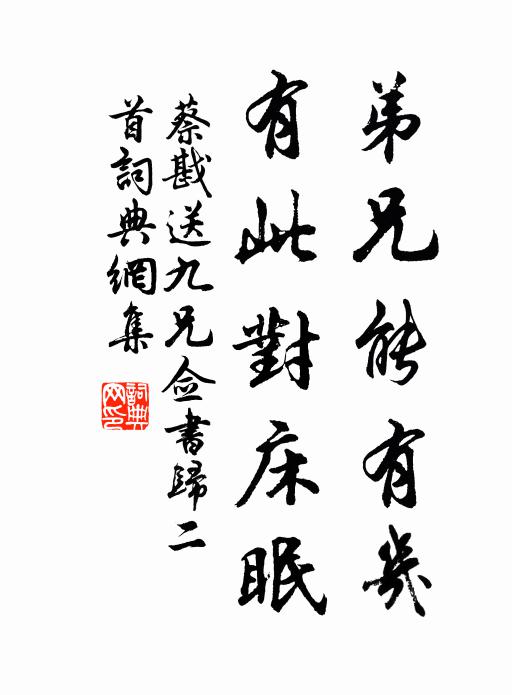 弟兄能有幾
有此對床眠
蔡戡送九兄僉書歸二
首詞典網集
詞典
网印